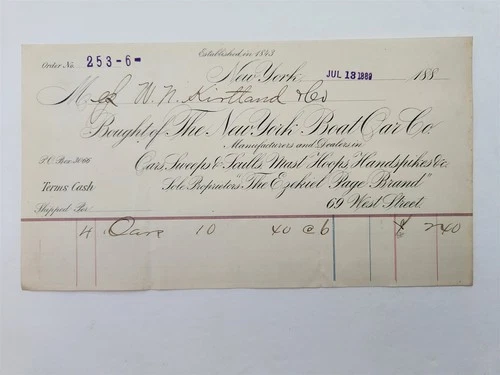 Established in 1843
Order No. 253-6-
New York JUL 13 1889 188
M W. N. Kirtland & Co
Bought of The New York Boat Oar Co.
Manufacturers and Dealers in
P.O. Box 3066 Oars, Sweeps & Sculls, Mast Hoops, Handspikes &c.
Terms Cash Sole Proprietors "The Ezekiel Page Brand"
Shipped Per 69 West Street
4 Oars 10 40 @ 6 $ 2 40